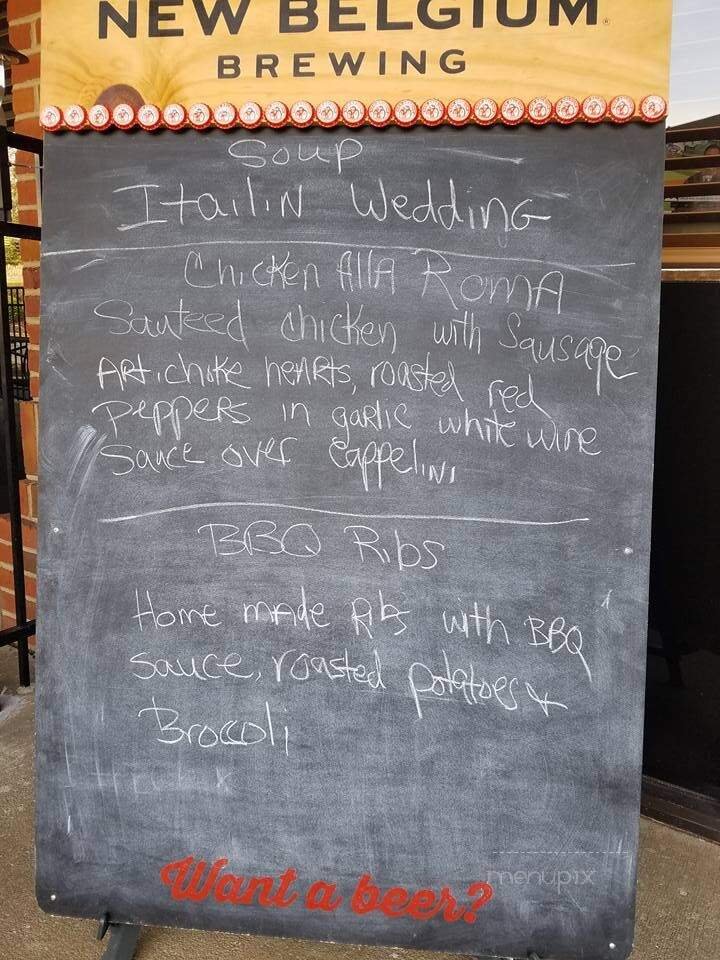 NEW BELGIUM
BREWING
Soup
Itailin Wedding
Chicken Alla Roma
Sauteed chicken with Sausage
Artichoke hearts, roasted red
Peppers in garlic white wine
Sauce over Cappelini
BBQ Ribs
Home made Ribs with BBQ
sauce, roasted potatoes &
Broccoli
Want a beer?
menupix